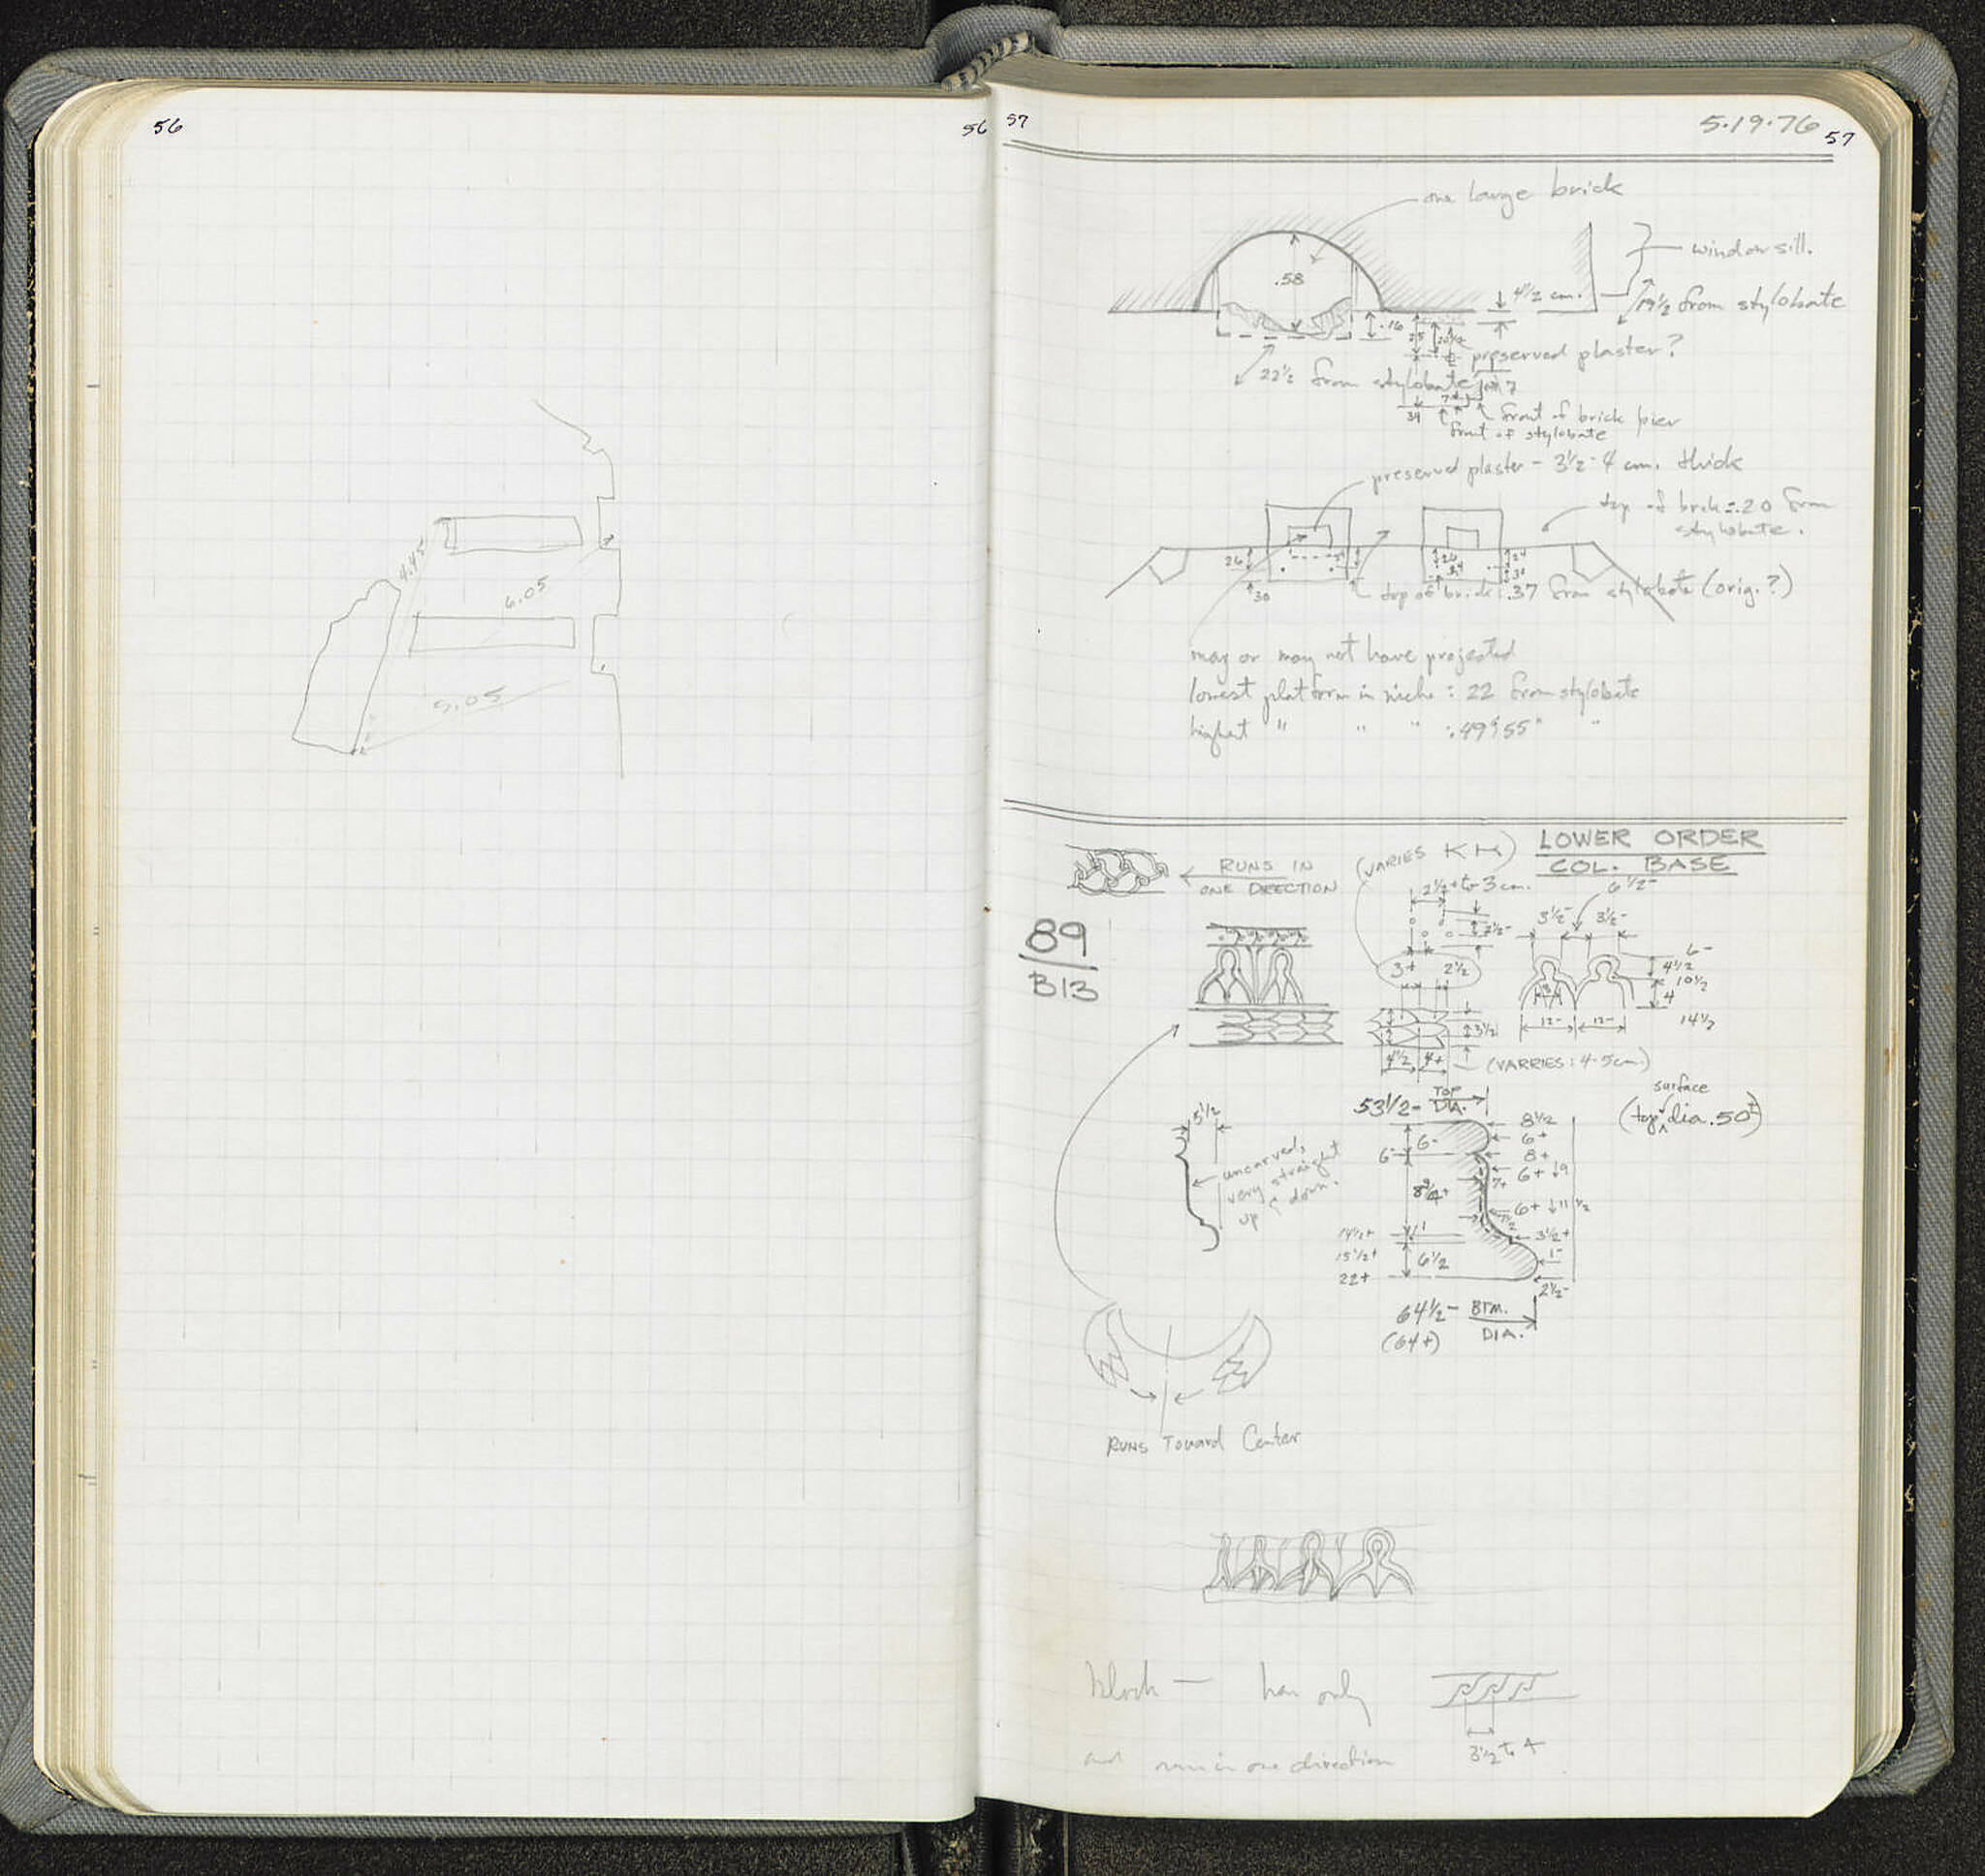 56
56
4.45
6.05
5.05
57
5.19.76
57
one large brick
.58
window sill.
4 1/2 cm.
19 1/2 from stylobate
.16
25
preserved plaster?
22 1/2 from stylobate
7
34
front of brick pier
front of stylobate
preserved plaster - 3 1/2 - 4 cm. thick
top of brick = .20 from
stylobate.
26
30
26
34
24
30
top of brick: .37 from stylobate (orig.?)
may or may not have projected
lowest platform in niche : 22 from stylobate
highest " " " : 49 & 55 " "
LOWER ORDER
COL. BASE
RUNS IN
ONE DIRECTION
(VARIES KH)
2 1/2+ to 3 cm.
2 1/2-
3+
2 1/2
6 1/2-
3 1/2-
3 1/2-
6-
4 1/2
10 1/2
4
14 1/2
12-
12-
89
B13
3 1/2
4 1/2
4+
(VARRIES: 4-5cm.)
53 1/2- TOP
DIA.
surface
(top ^ dia. 50±)
5 1/2
uncarved,
very straight
up & down.
6-
6-
8 3/4+
1
14 1/2+
15 1/2+
22+
6 1/2
8 1/2
6+
8+
6+ ↓9
7+
6+ ↓11 1/2
3 1/2+
1-
2 1/2-
64 1/2- BTM.
DIA.
(64+)
RUNS Toward Center
block — has only
3 1/2 to 4
and runs in one direction